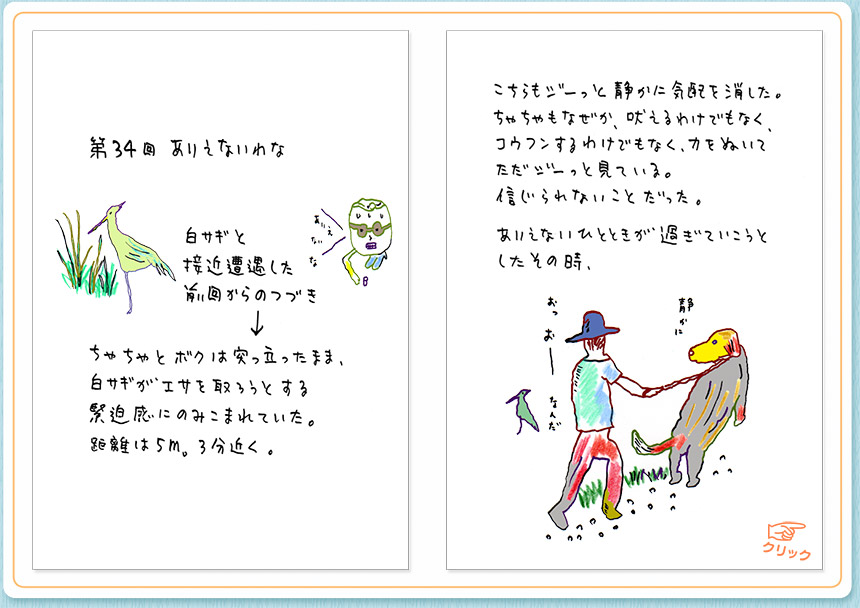 第34回 ありえないわな
白サギと
接近遭遇した
前回からのつづき
↓
ありえ
ないな
ちゃちゃとボクは突っ立ったまま、
白サギがエサを取ろうとする
緊迫感にのみこまれていた。
距離は5m。3分近く。
こちらもジーっと静かに気配を消した。
ちゃちゃもなぜか、吠えるわけでもなく、
コウフンするわけでもなく、力をぬいて
ただジーっと見ている。
信じられないことだった。
ありえないひとときが過ぎていこうと
したその時、
おっ
おー
なんだ
静かに
クリック